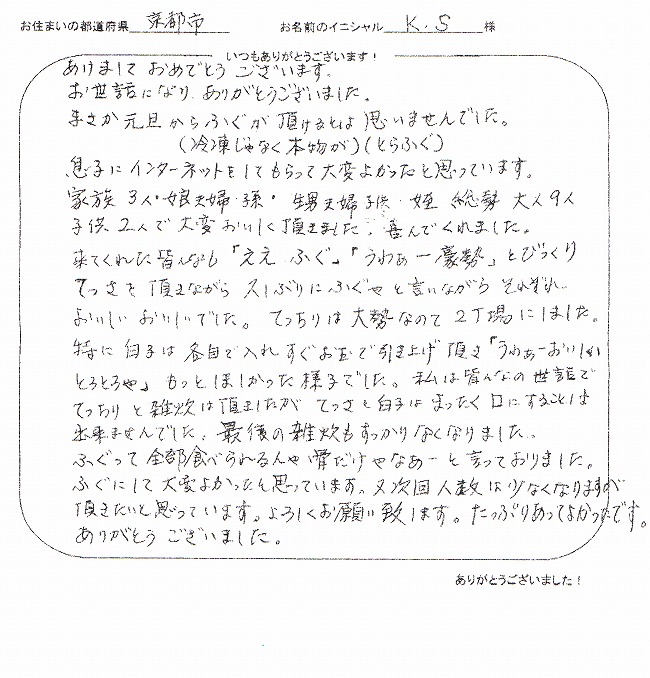 お住まいの都道府県 京都市 お名前のイニシャル K.S 様
いつもありがとうございます！
あけまして おめでとう ございます。
お世話になり、ありがとうございました。
まさか元旦からふぐが頂けるとは思いませんでした。
（冷凍じゃなく本物が）（とらふぐ）
息子にインターネットをしてもらって大変よかったと思っています。
家族3人・娘夫婦・孫・甥夫婦子供・姪 総勢 大人9人
子供2人で大変おいしく頂きました。喜んでくれました。
来てくれた皆んなも「ええ ふぐ」「うわぁー豪勢」とびっくり
てっさを頂きながら 久しぶりにふぐやと言いながら それぞれ
おいしい おいしいでした。てっちりは大勢なので2丁場にしました。
特に白子は各自で入れすぐお玉で引き上げ頂き「うわぁーおいしい
とろとろや」もっとほしかった様子でした。私は皆んなの世話で
てっちりと雑炊は頂ましたが てっさと白子はまったく口にすることは
出来ませんでした、最後の雑炊もすっかりなくなりました。
ふぐって全部食べられるんや骨だけやなあーと言っておりました。
ふぐにして大変よかったと思っています。又次回人数は少なくなりますが
頂きたいと思っています。よろしくお願い致します。たっぷりあってよかったです。
ありがとう ございました。
ありがとうございました！